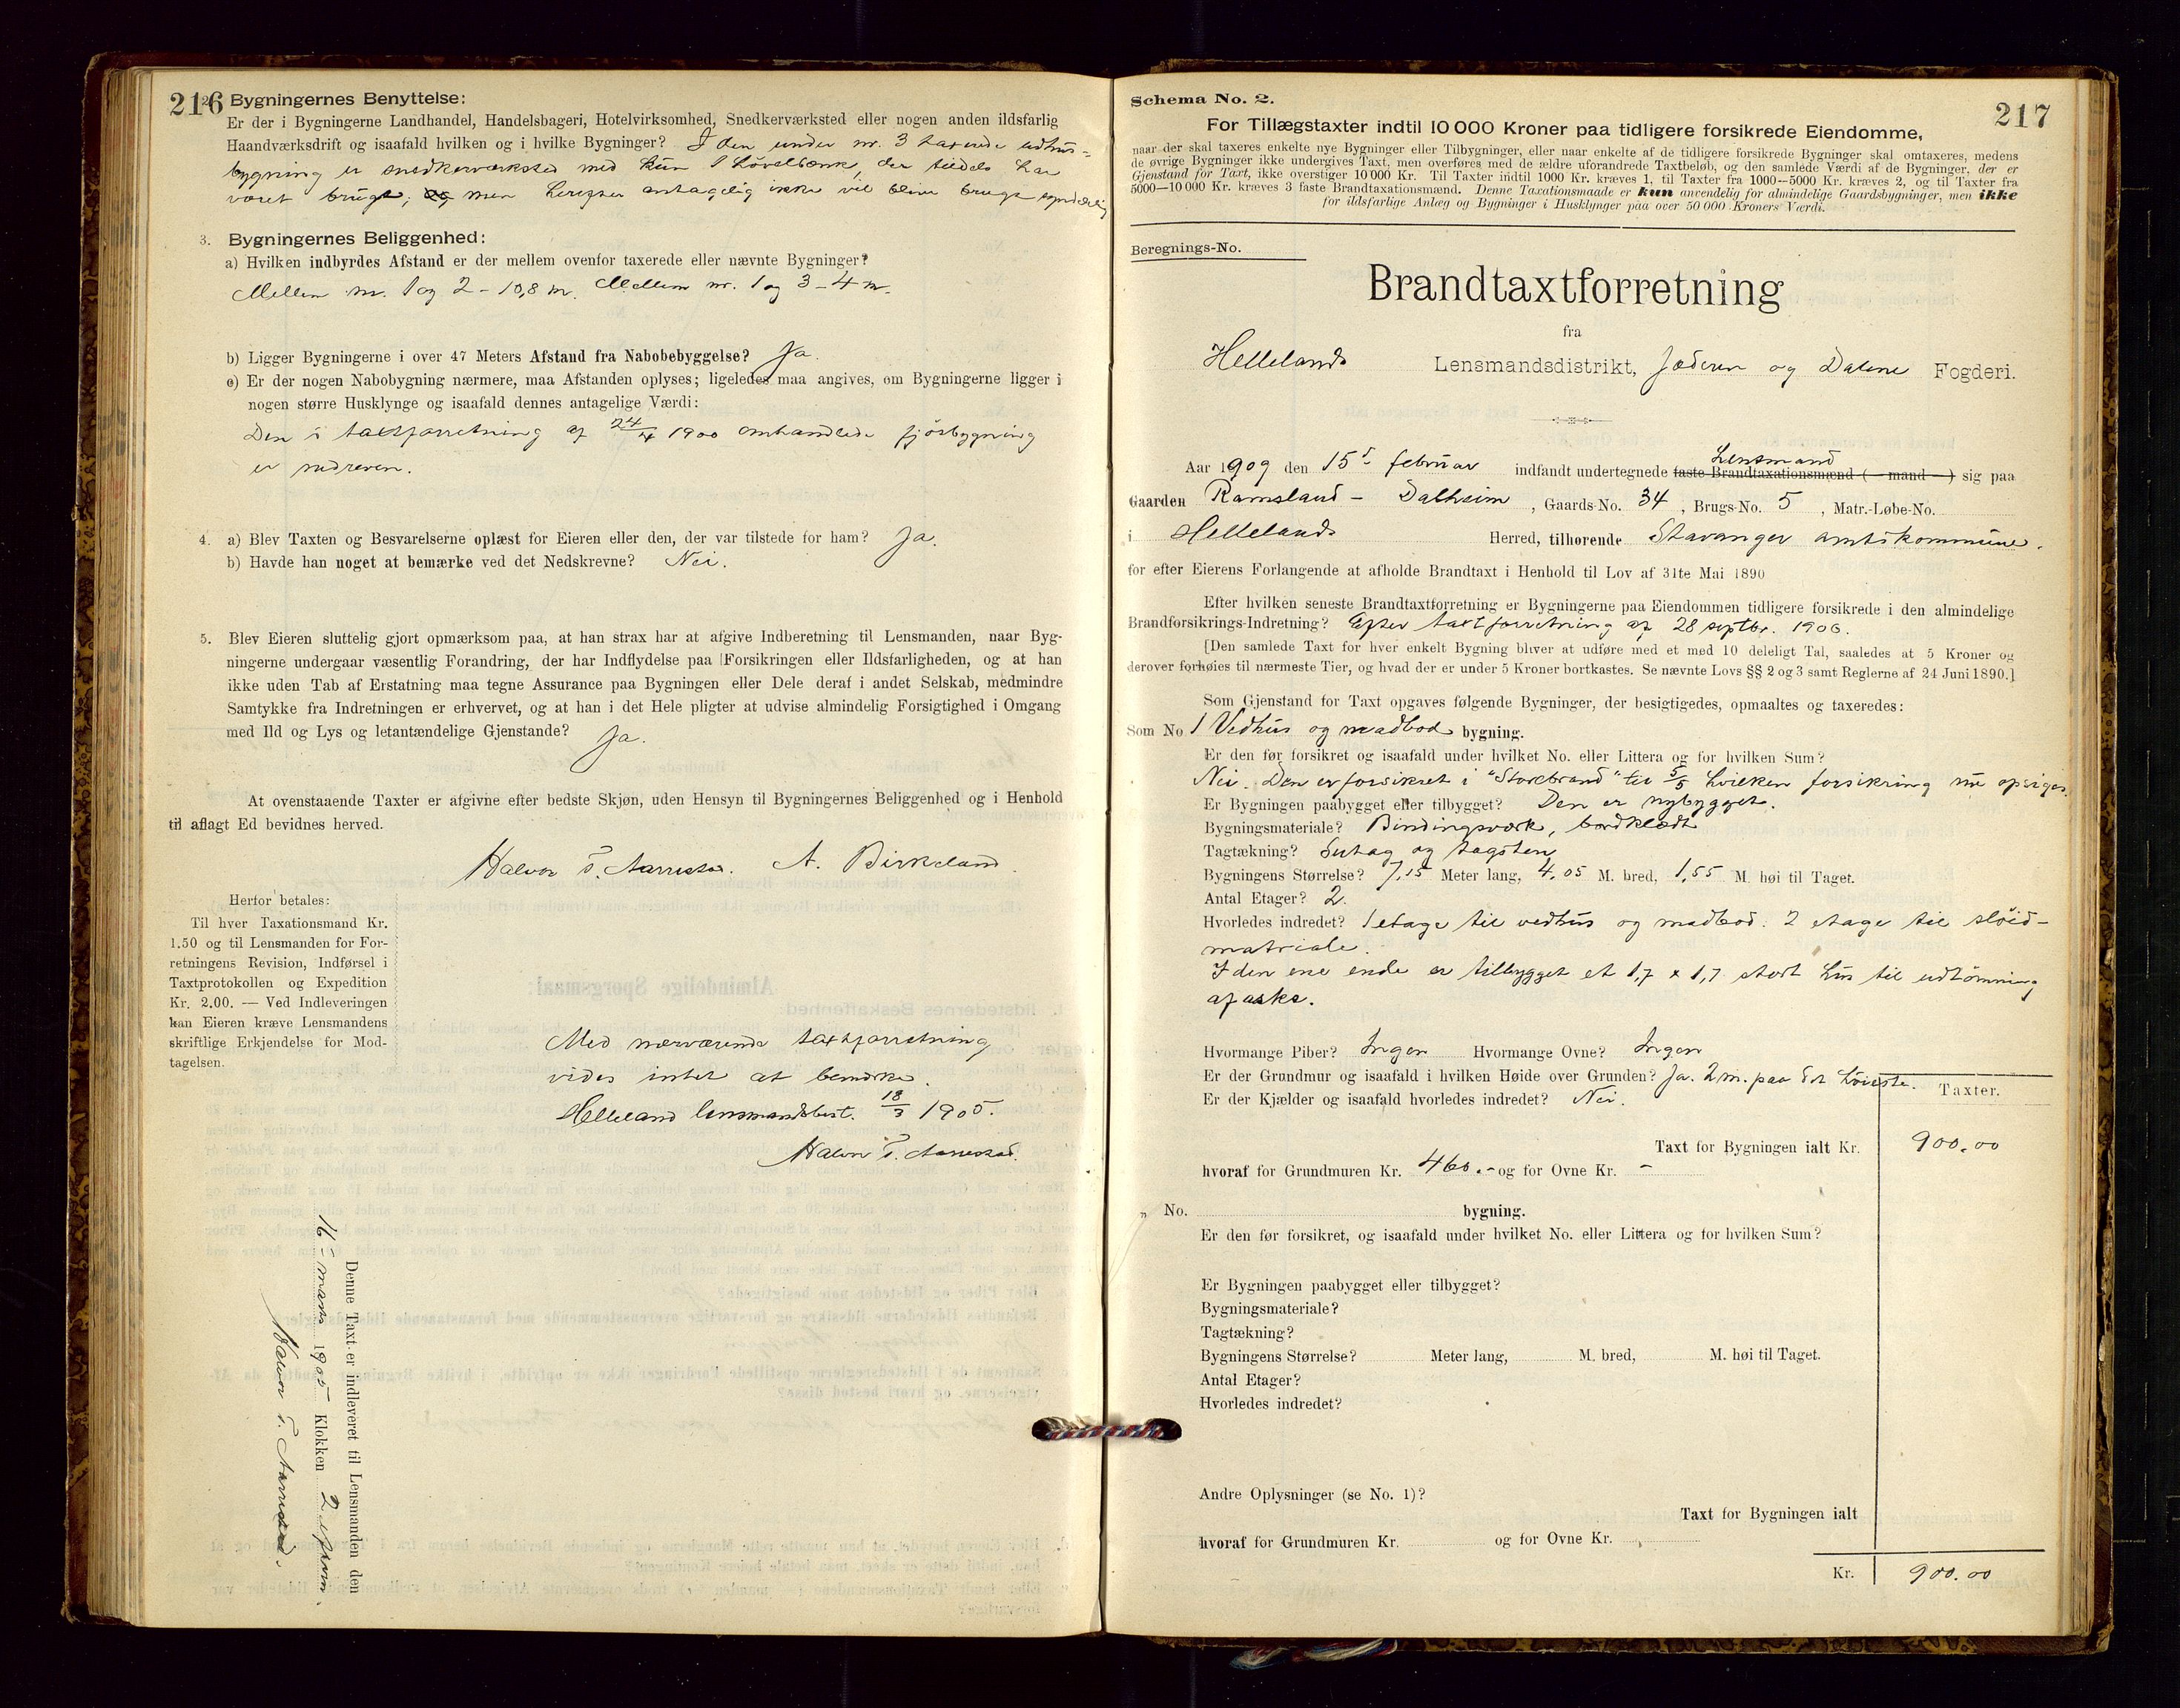 216
2. Bygningernes Benyttelse:
Er der i Bygningerne Landhandel, Handelsbageri, Hotelvirksomhed, Snedkerværksted eller nogen anden ildsfarlig
Haandværksdrift og isaafald hvilken og i hvilke Bygninger? I den under nr. 3 taxerede udhus-
bygning er snedkerværksted med kun 1 høvelbænk, der tildels har
været brugt, men herefter antagelig ikke vil blive brugt
3. Bygningernes Beliggenhed:
a) Hvilken indbyrdes Afstand er der mellem ovenfor taxerede eller nævnte Bygninger?
Mellem nr. 1 og 2 - 10,8 m. Mellem nr. 1 og 3 - 4 m.
b) Ligger Bygningerne i over 47 Meters Afstand fra Nabobebyggelse? Ja.
c) Er der nogen Nabobygning nærmere, maa Afstanden oplyses; ligeledes maa angives, om Bygningerne ligger i
nogen større Husklynge og isaafald dennes antagelige Værdi:
Den i taxtforretning af 24/4 1900 omhandlede fjøsbygning
er nedreven.
4. a) Blev Taxten og Besvarelserne oplæst for Eieren eller den, der var tilstede for ham? Ja.
b) Havde han noget at bemærke ved det Nedskrevne? Nei.
5. Blev Eieren sluttelig gjort opmærksom paa, at han strax har at afgive Indberetning til Lensmanden, naar Byg-
ningerne undergaar væsentlig Forandring, der har Indflydelse paa Forsikringen eller Ildsfarligheden, og at han
ikke uden Tab af Erstatning maa tegne Assurance paa Bygningen eller Dele deraf i andet Selskab, medmindre
Samtykke fra Indretningen er erhvervet, og at han i det Hele pligter at udvise almindelig Forsigtighed i Omgang
med Ild og Lys og letantændelige Gjenstande? Ja.
At ovenstaaende Taxter er afgivne efter bedste Skjøn, uden Hensyn til Bygningernes Beliggenhed og i Henhold
til aflagt Ed bevidnes herved.
Halvor T. Aarrestad. A. Birkeland.
Herfor betales:
Til hver Taxationsmand Kr.
1.50 og til Lensmanden for For-
retningens Revision, Indførsel i
Taxtprotokollen og Expedition
Kr. 2.00. — Ved Indleveringen
kan Eieren kræve Lensmandens
skriftlige Erkjendelse for Mod-
tagelsen.
Med nærværende taxtforretning
vides intet at bemærke.
Helleland lensmandsbest. 18/3 1905.
Halvor T. Aarrestad.
Denne Taxt er indleveret til Lensmanden den
16 - marts 1905 Klokken 2 efterm.
Halvor T. Aarrestad.
217
Schema No. 2.
For Tillægstaxter indtil 10 000 Kroner paa tidligere forsikrede Eiendomme,
naar der skal taxeres enkelte nye Bygninger eller Tilbygninger, eller naar enkelte af de tidligere forsikrede Bygninger skal omtaxeres, medens
de øvrige Bygninger ikke undergives Taxt, men overføres med de ældre uforandrede Taxtbeløb, og den samlede Værdi af de Bygninger, der er
Gjenstand for Taxt, ikke overstiger 10 000 Kr. Til Taxter indtil 1000 Kr. kræves 1, til Taxter fra 1000—5000 Kr. kræves 2, og til Taxter fra
5000—10 000 Kr. kræves 3 faste Brandtaxationsmænd. Denne Taxationsmaade er kun anvendelig for almindelige Gaardsbygninger, men ikke
for ildsfarlige Anlæg og Bygninger i Husklynger paa over 50 000 Kroners Værdi.
Beregnings-No.
Brandtaxtforretning
fra
Hellelands Lensmandsdistrikt, Jæderen og Dalene Fogderi.
Lensmand
Aar 1909 den 15de februar indfandt undertegnede faste Brandtaxationsmænd ( — mand — ) sig paa
Gaarden Ramsland - Dalheim, Gaards-No. 34, Brugs-No. 5, Matr.-Løbe-No.
i Hellelands Herred, tilhørende Stavanger amtskommune.
for efter Eierens Forlangende at afholde Brandtaxt i Henhold til Lov af 31te Mai 1890
Efter hvilken seneste Brandtaxtforretning er Bygningerne paa Eiendommen tidligere forsikrede i den almindelige
Brandforsikrings-Indretning? Efter taxtforretning af 28 septbr. 1906.
[Den samlede Taxt for hver enkelt Bygning bliver at udføre med et med 10 deleligt Tal, saaledes at 5 Kroner og
derover forhøies til nærmeste Tier, og hvad der er under 5 Kroner bortkastes. Se nævnte Lovs §§ 2 og 3 samt Reglerne af 24 Juni 1890.]
Som Gjenstand for Taxt opgaves følgende Bygninger, der besigtigedes, opmaaltes og taxeredes:
Som No 1 Vedhus og madbod bygning.
Er den før forsikret og isaafald under hvilket No. eller Littera og for hvilken Sum?
Nei. Den er forsikret i "Storebrand" til 5/5 hvilken forsikring nu opsiges.
Er Bygningen paabygget eller tilbygget? Den er nybygget.
Bygningsmateriale? Bindingsværk, bordklædt
Tagtækning? Sutag og tagsten
Bygningens Størrelse? 7,15 Meter lang, 4,05 M. bred, 1,55 M. høi til Taget.
Antal Etager? 2.
Hvorledes indredet? 1 etage til vedhus og madbod. 2 etage til sløid-
matriale.
I den ene ende er tilbygget et 1,7 x 1,7 stort hus til udtømning
af aske.
Hvormange Piber? Ingen Hvormange Ovne? Ingen
Er der Grundmur og isaafald i hvilken Høide over Grunden? Ja. 2 m. paa det høieste.
Er der Kjælder og isaafald hvorledes indredet? Nei.
Taxter.
Taxt for Bygningen ialt Kr. 900.00
hvoraf for Grundmuren Kr. 460.- og for Ovne Kr. -
„ No. bygning.
Er den før forsikret, og isaafald under hvilket No. eller Littera og for hvilken Sum?
Er Bygningen paabygget eller tilbygget?
Bygningsmateriale?
Tagtækning?
Bygningens Størrelse? Meter lang, M. bred, M. høi til Taget.
Antal Etager?
Hvorledes indredet?
Andre Oplysninger (se No. 1)?
Taxt for Bygningen ialt
hvoraf for Grundmuren Kr. og for Ovne Kr.
Kr. 900.00